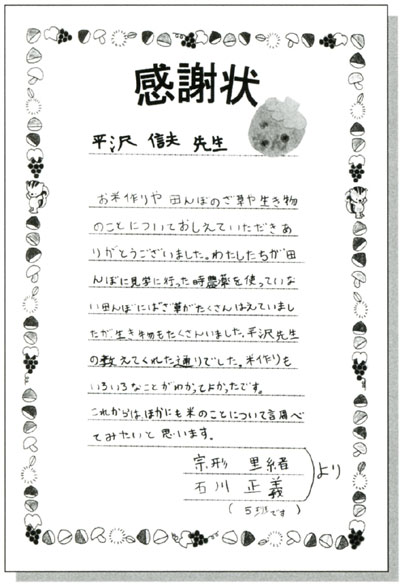 感謝状
平沢 信夫 先生
お米作りや田んぼのざ草や生き物
のことについておしえていただきあ
りがとうございました。わたしたちが田
んぼに見学に行った時農薬を使っていな
い田んぼにはざ草がたくさんはえていまし
たが生き物もたくさんいました。平沢先生
の教えてくれた通りでした。米作りも
いろいろなことがわかってよかったです。
これからはほかにも米のことについて調べ
てみたいと思います。
宗形 里緒
石川 正義
より
(5班です)